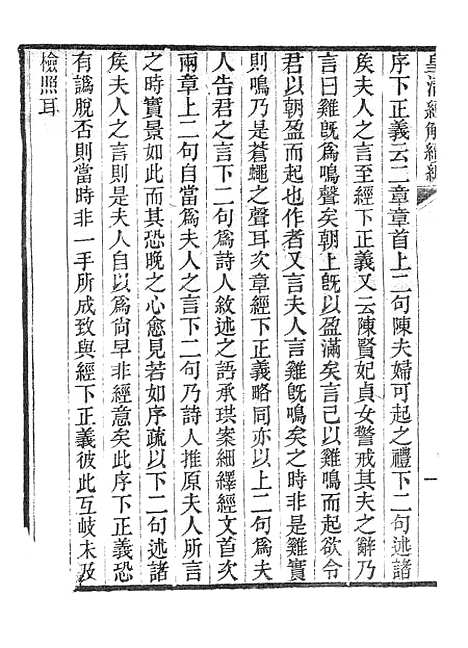 皇清經解續編
序下正義云二章章首上二句陳夫婦可起之禮下二句述諸
矦夫人之言至經下正義又云陳賢妃貞女警戒其夫之辭乃
言曰雞旣爲鳴聲矣朝上旣以盈滿矣言己以雞鳴而起欲令
君以朝盈而起也作者又言夫人言雞旣鳴矣之時非是雞實
則鳴乃是蒼蠅之聲耳次章經下正義略同亦以上二句爲夫
人告君之言下二句爲詩人敘述之語承珙案細繹經文首次
兩章上二句自當爲夫人之言下二句乃詩人推原夫人所言
之時實景如此而其恐晚之心愈見若如序疏以下二句述諸
矦夫人之言則是夫人自以爲尙早非經意矣此序下正義恐
有譌脫否則當時非一手所成致與經下正義彼此互岐未及
檢照耳
一